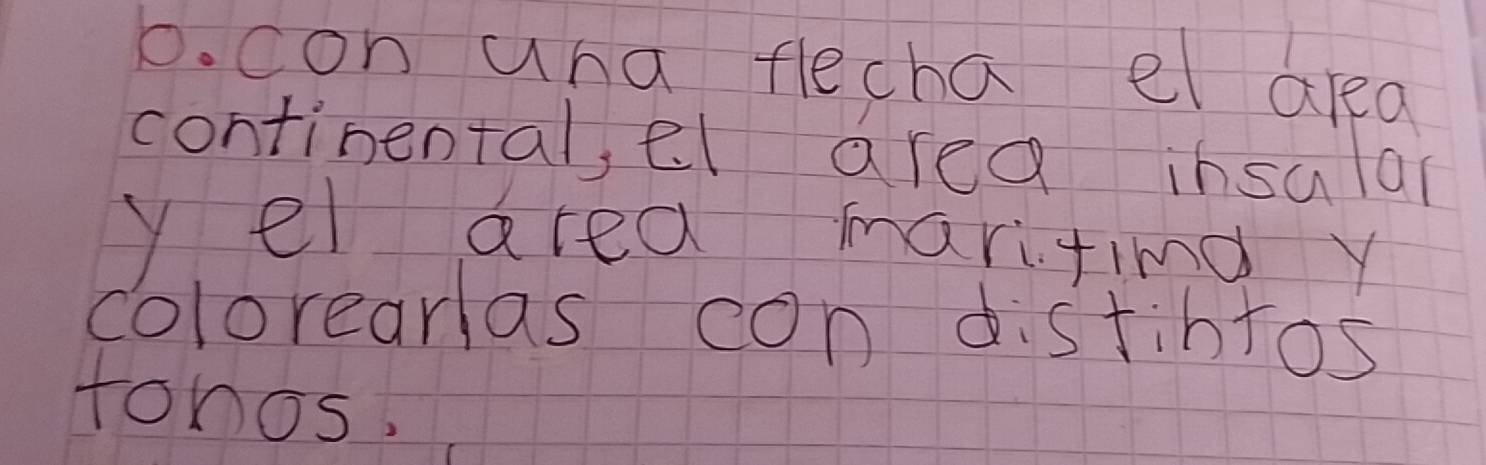 b. con una flecha el área
continental, el área insular
y el área maritima y
colorearlas con distintos
tonos.